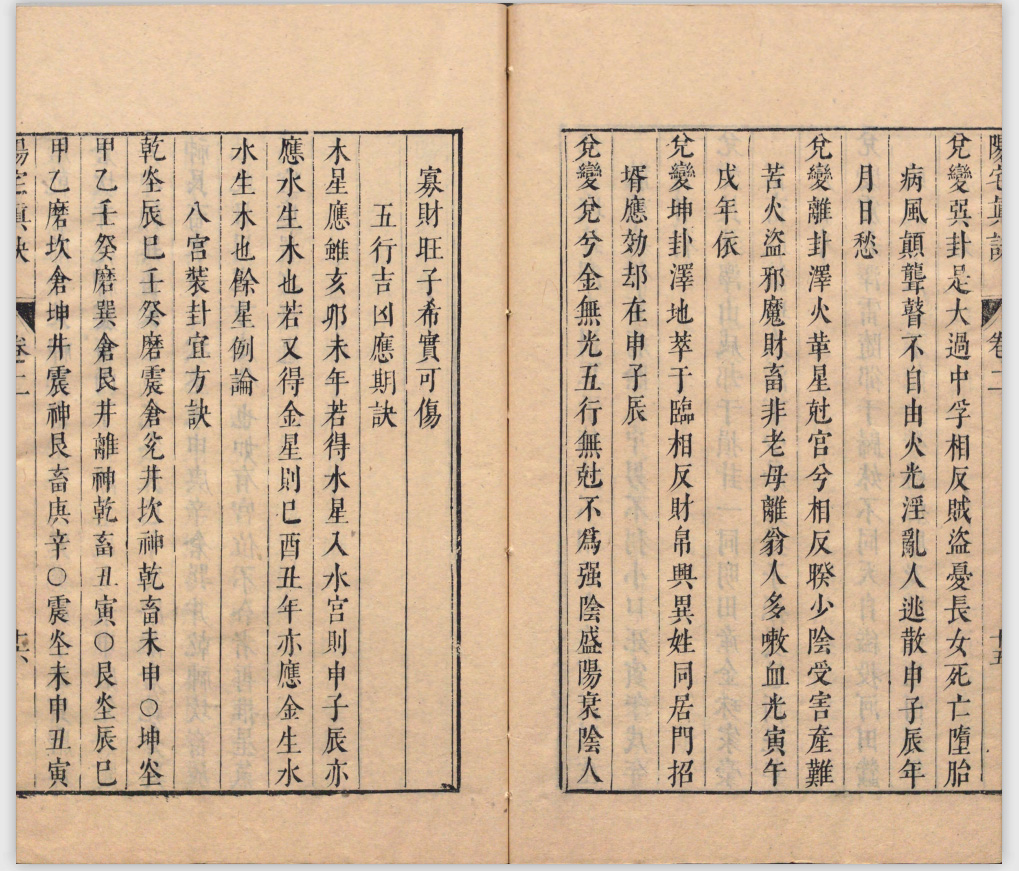 陽宅眞訣 卷二 十五
兌變巽卦是大過中孚相反賊盜憂長女死亡墮胎
病風顛聾瞽不自由火光淫亂人逃散申子辰年
月日愁
兌變離卦澤火革星尅官兮相反睽少陰受害產難
苦火盜邪魔財畜非老母離翁人多嗽血光寅午
戌年依
兌變坤卦澤地萃于臨相反財帛興異姓同居門招
壻應効却在申子辰
兌變兌兮金無光五行無尅不爲强陰盛陽衰陰人
寡財旺子希實可傷
五行吉凶應期訣
木星應雖亥卯未年若得水星入水宮則申子辰亦
應水生木也若又得金星則巳酉丑年亦應金生水
水生木也餘星例論
八宮裝卦宜方訣
乾灶辰巳壬癸磨震倉兌井坎神乾畜未申○坤灶
甲乙壬癸磨巽倉艮井離神乾畜丑寅○艮灶辰巳
甲乙磨坎倉坤井震神艮畜庚辛○震灶未申丑寅
陽宅眞訣 卷二 十六